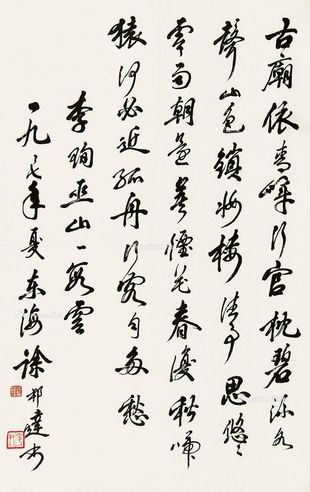 古廟依青嶂行宫枕碧流水
聲山色鎖妝樓往事思悠々
雲雨朝還暮煙花春復秋啼
猿何必近孤舟行客自多愁
李珣巫山一段雲
一九七年夏东海徐邦達书